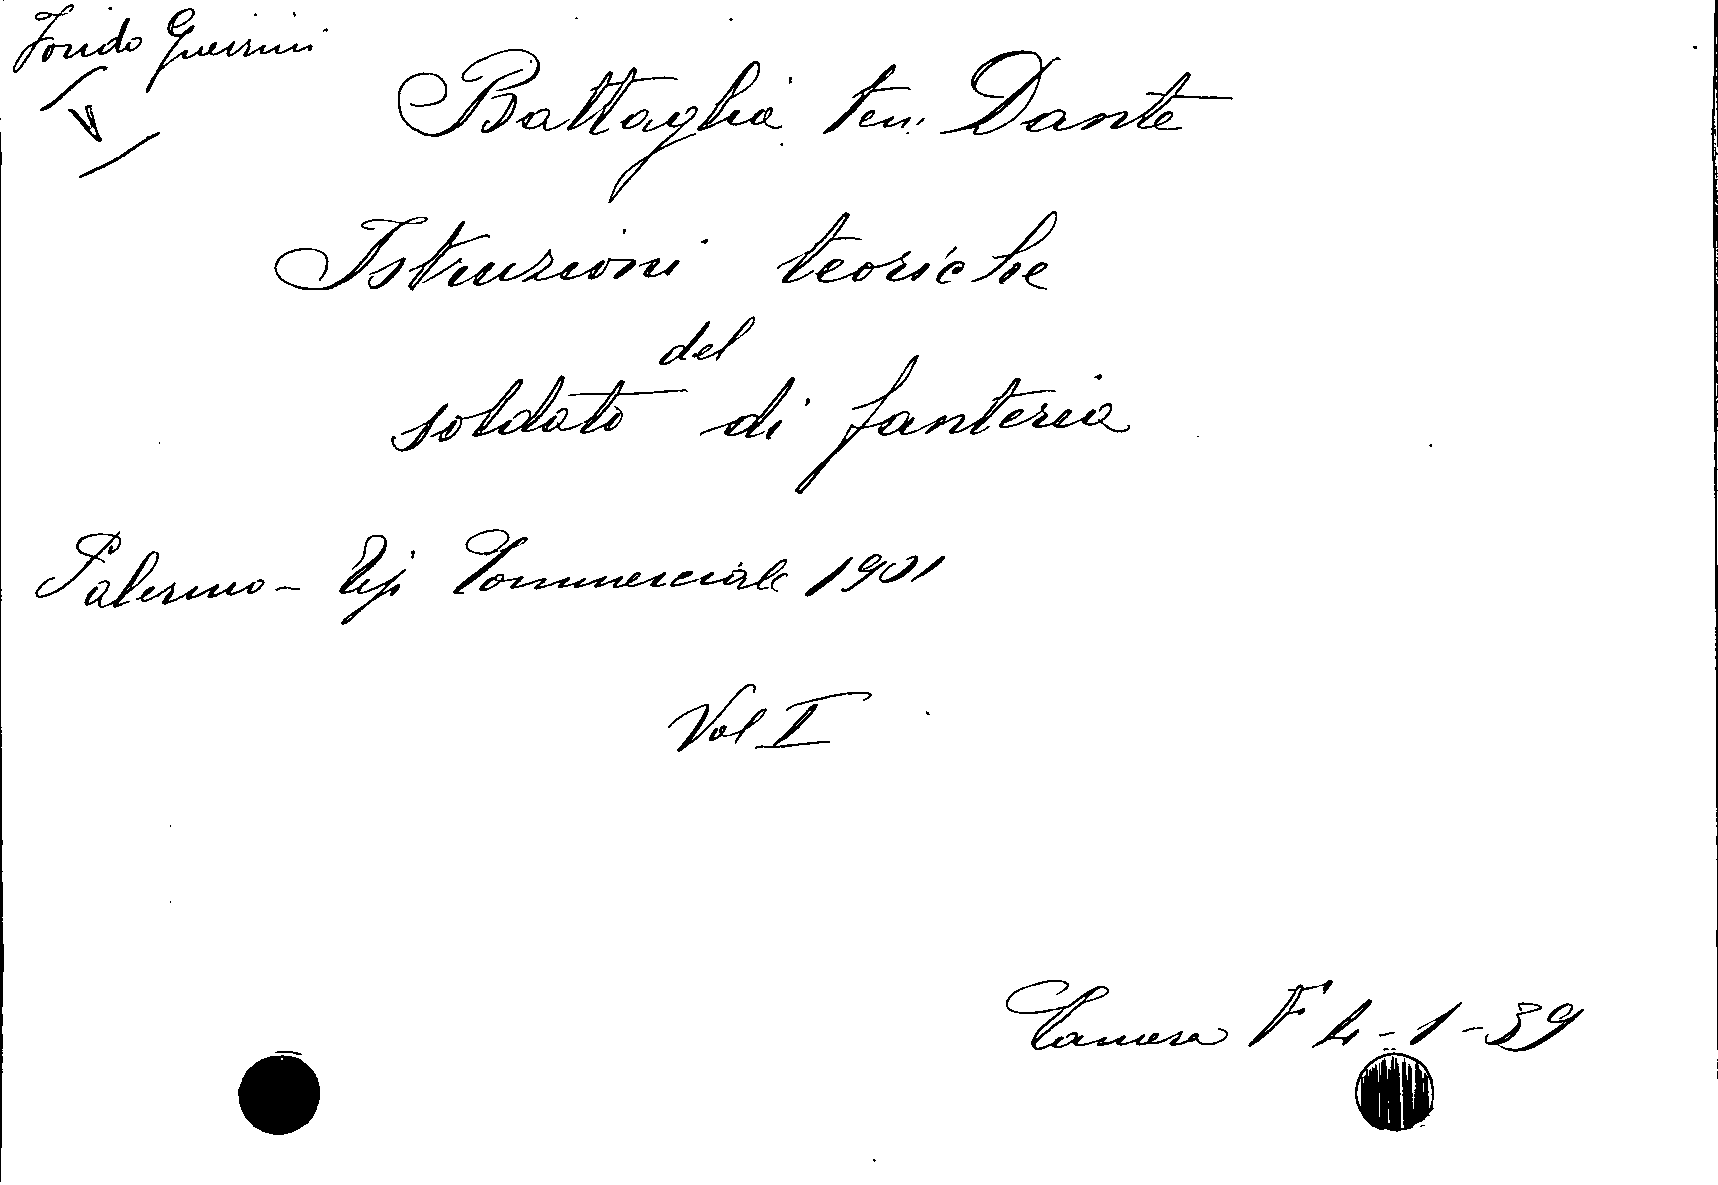 Fondo Guerrini
V
Battaglia ten. Dante
Istruzioni teoriche
del
soldato di fanteria
Palermo - Tip Commerciale 1901
Vol I
Camera F 4-1-39